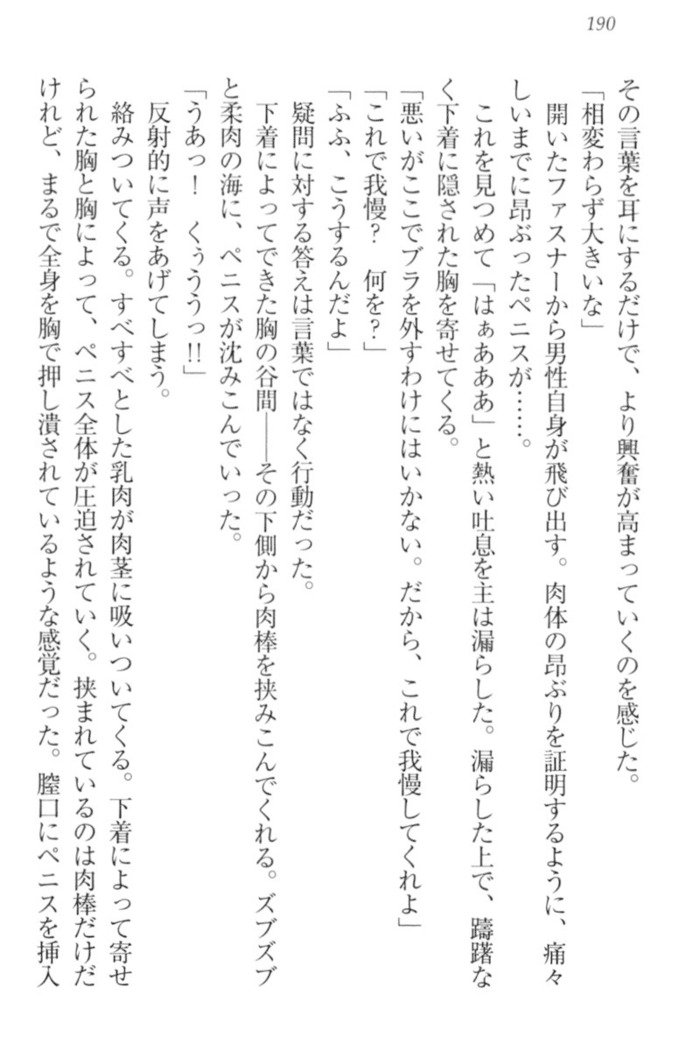 190
その言葉を耳にするだけで、より興奮が高まっていくのを感じた。
「相変わらず大きいな」
開いたファスナーから男性自身が飛び出す。肉体の昂ぶりを証明するように、痛々
しいまでに昂ぶったペニスが……。
これを見つめて「はぁあああ」と熱い吐息を主は漏らした。漏らした上で、躊躇な
く下着に隠された胸を寄せてくる。
「悪いがここでブラを外すわけにはいかない。だから、これで我慢してくれよ」
「これで我慢？　何を？」
「ふふ、こうするんだよ」
疑問に対する答えは言葉ではなく行動だった。
下着によってできた胸の谷間――その下側から肉棒を挟みこんでくれる。ズブズブ
と柔肉の海に、ペニスが沈みこんでいった。
「うあっ！　くぅううっ!!」
反射的に声をあげてしまう。
絡みついてくる。すべすべとした乳肉が肉茎に吸いついてくる。下着によって寄せ
られた胸と胸によって、ペニス全体が圧迫されていく。挟まれているのは肉棒だけだ
けれど、まるで全身を胸で押し潰されているような感覚だった。膣口にペニスを挿入